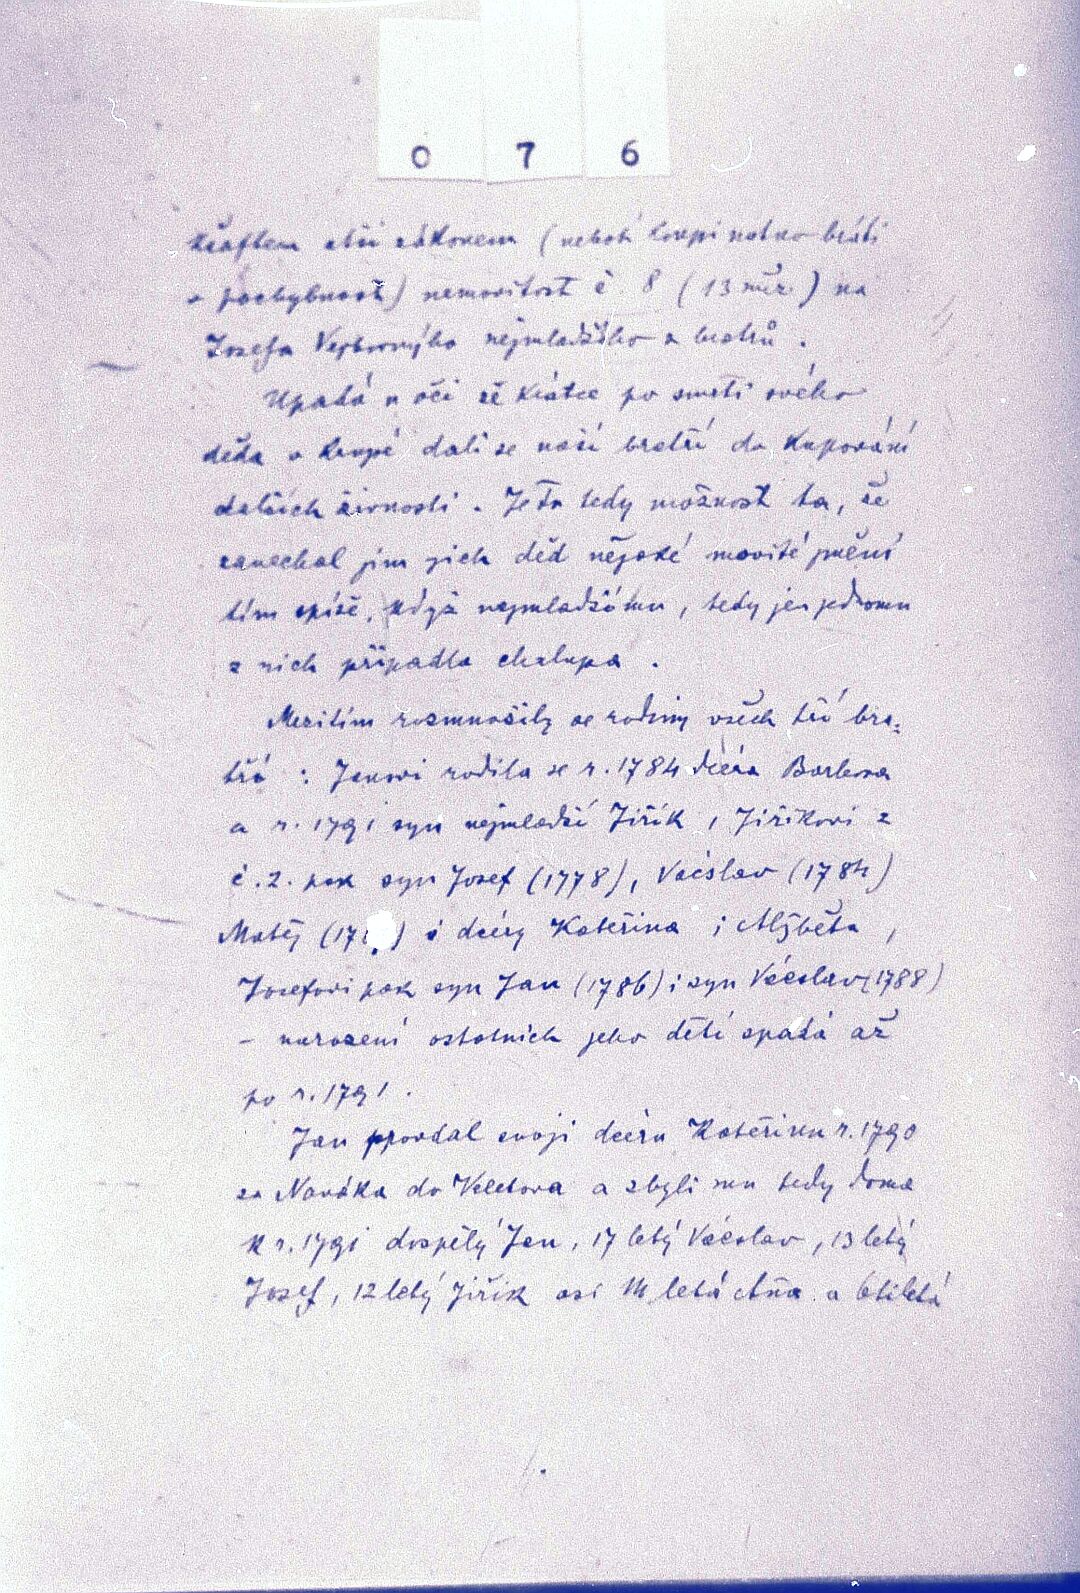 0 7 6
kšaftem či zákonem (neboť koupi nutno bráti
v pochybnost) nemovitost č. 8 (13 měr.) na
Josefa nejmladšího z bratrů.
Upadá v oči že krátce po smrti svého
děda a koupě dali se naši bratří do kupování
dalších živností. Je tu tedy možnost ta, že
zanechal jim jich děd nějaké movité jmění
tím spíše, když nejmladšímu, tedy jen jednomu
z nich připadla chalupa.
Mezitím rozmnožily se rodiny všech tří bra-
trů: Janovi rodila se r. 1784 dcéra Barbora
a r. 1791 syn nejmladší Jiřík, Jiříkovi z
č. 2. pak syn Josef (1778), Václav (1784)
Matěj (178 ) i dcéry Kateřina i Alžběta,
Josefovi pak syn Jan (1786) i syn Václav (1788)
- narození ostatních jeho dětí spadá až
po r. 1791.
Jan provdal svoji dcéru Kateřinu r. 1790
za Nováka do Veletova a zbyli mu tedy doma
k r. 1791 dospělý Jan, 17 letý Václav, 13 letý
Josef, 12 letý Jiřík asi 14 letá Aňa a 6tiletá